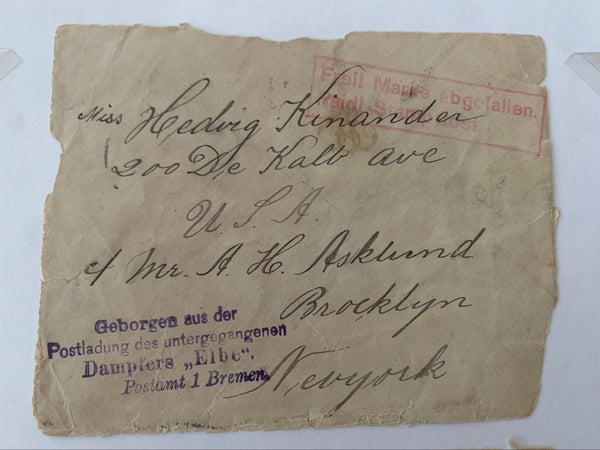 Frei! Marke abgefallen.
Paid! Stamp lost
Miss Hedvig Kinander
200 De Kalb ave
U. S. A.
c/ Mr. A. H. Asklund
Brocklyn
Nevyork
Geborgen aus der
Postladung des untergegangenen
Dampfers „Elbe".
Postamt 1 Bremen.